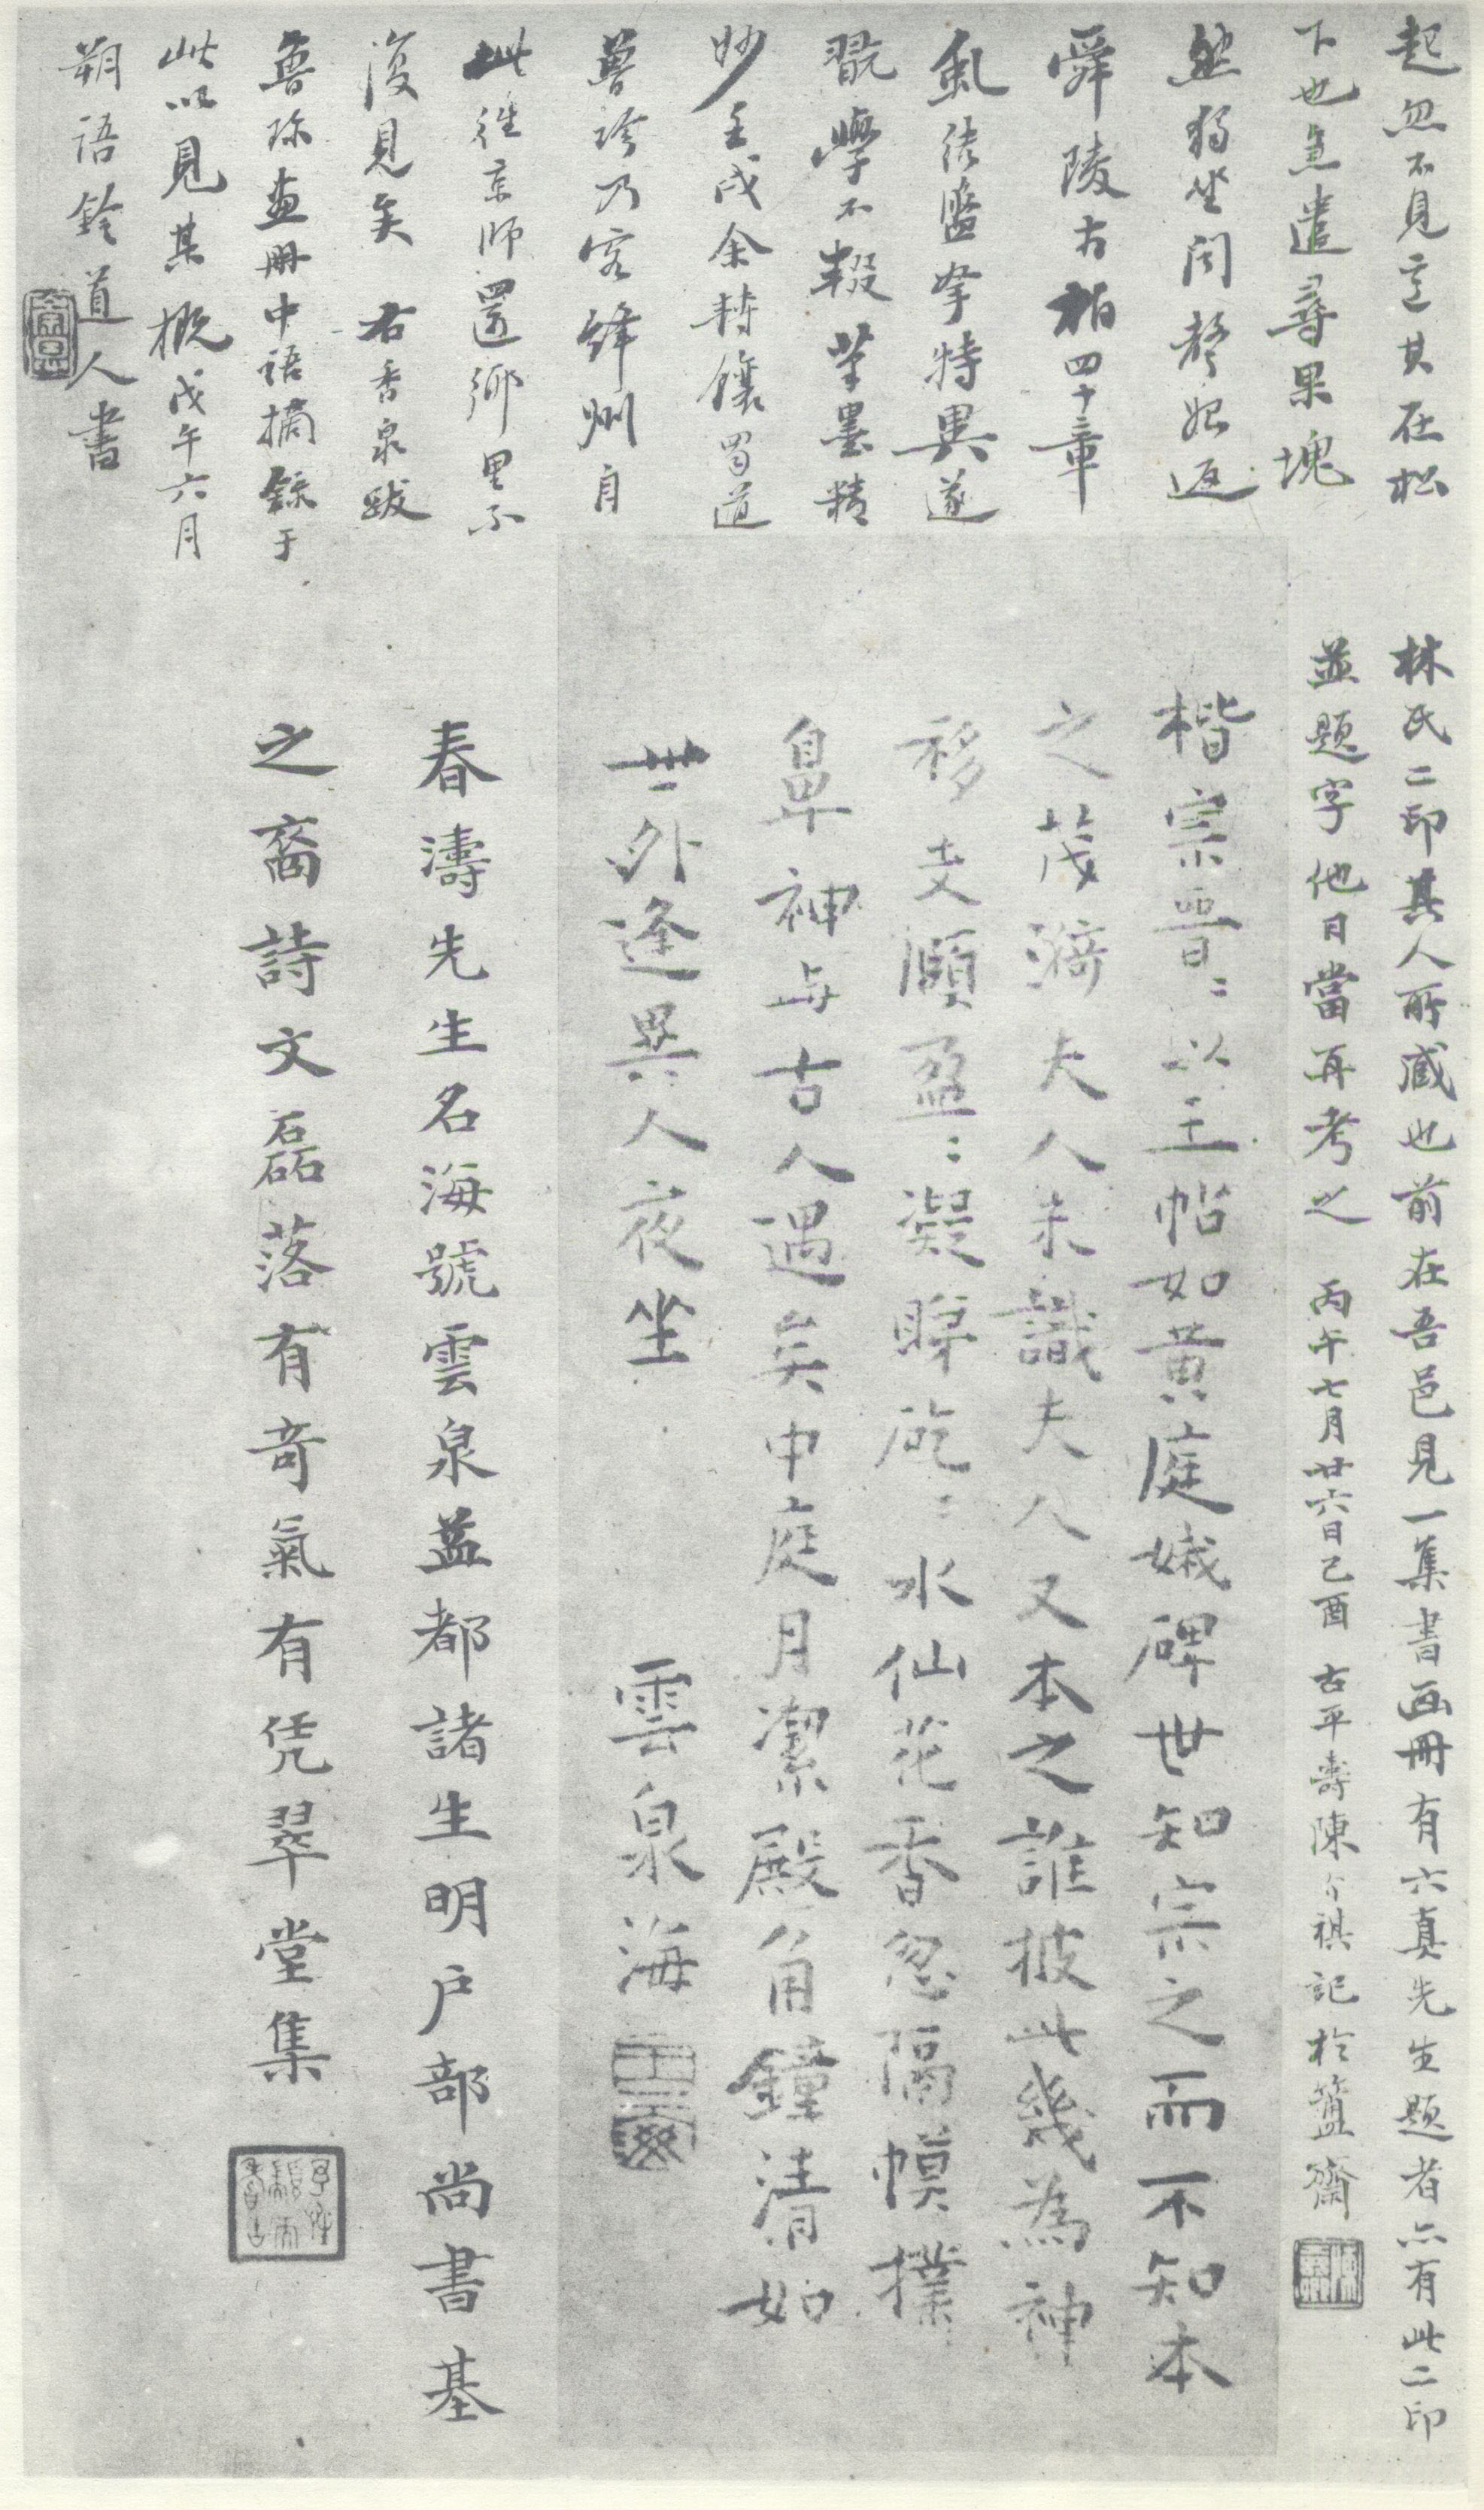 起忽不見意其在松
下也急遣尋果塊
然獨坐聞聲始返
舜陵古柏四十章
虬結盤拏特異遂
翫學不輟筆墨精
妙壬戌余轉饟蜀道
兽診乃客絳州自
此往京師還鄉里不
復見矣 右香泉跋
魯珍畫冊中語摘錄于
此以見其概戊午六月
朔語鈴道人書
林氏二印其人所藏也前在吾邑見一集書画冊有六真先生題者亦有此二印
並題字他日當再考之 丙午七月廿六日己酉 古平壽陳介祺記於簠齋
楷宗晉=以王帖如黄庭娥碑世知宗之而不知本
之茂漪夫人未識夫人又本之誰披此幾為神
移支頤盈=凝睇矻=水仙花香忽隔幙撲
鼻神与古人遇矣中庭月潔殿角鐘清如
世外逢異人夜坐
雲泉海
春濤先生名海號雲泉益都諸生明户部尚書基
之裔詩文磊落有奇氣有凭翠堂集